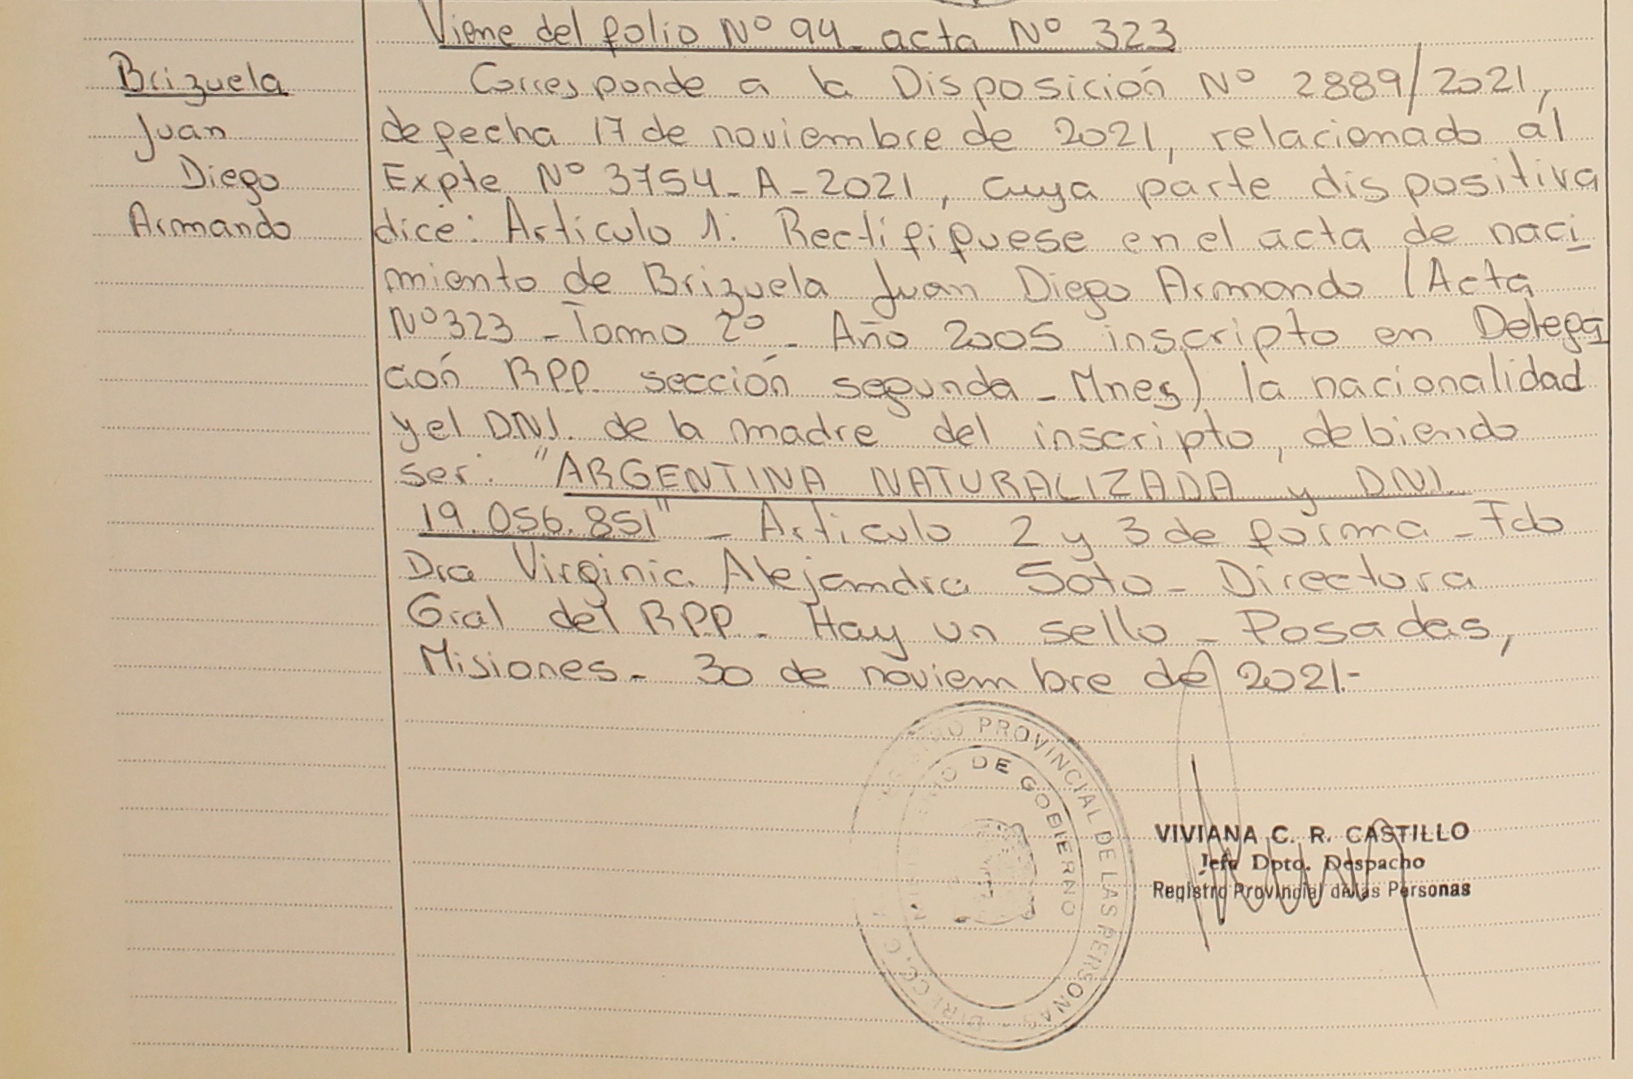 Viene del folio Nº 94 - acta Nº 323
Brizuela
Juan
Diego
Armando
Corresponde a la Disposición Nº 2889/2021,
de fecha 17 de noviembre de 2021, relacionado al
Expte Nº 3754 - A - 2021, cuya parte dispositiva
dice: Artículo 1. Rectififiquese en el acta de naci
miento de Brizuela Juan Diego Armando (Acta
Nº 323 - Tomo 2º - Año 2005 inscripto en Delega
ción RPP. sección segunda - Mnes) la nacionalidad
y el D.N.I. de la madre del inscripto, debiendo
ser: "ARGENTINA NATURALIZADA y D.N.I.
19.056.851" - Artículo 2 y 3 de forma - Fdo
Dra Virginia Alejandra Soto - Directora
Gral del RPP. - Hay un sello - Posadas,
Misiones - 30 de noviembre de 2021.-
PROVINCIAL DE LAS PERSONAS
DE GOBIERNO
VIVIANA C. R. CASTILLO
Jefa Dpto. Despacho
Registro Provincial de las Personas